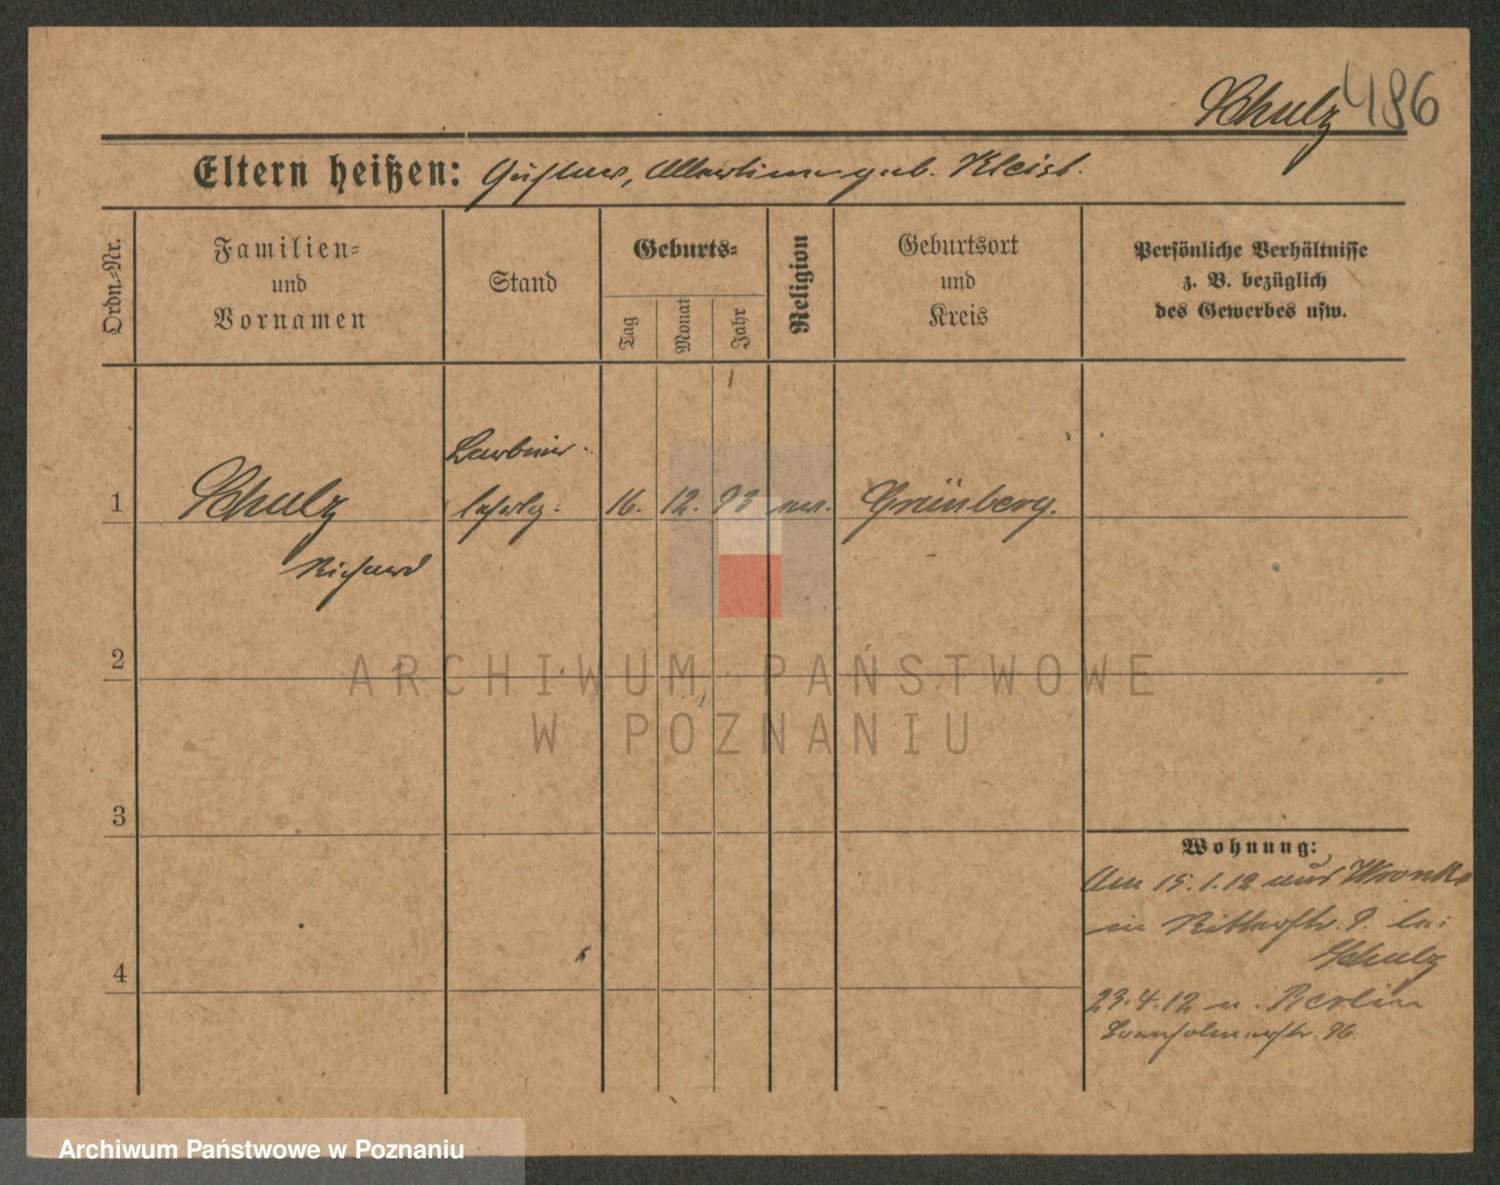 Schulz 486
Eltern heißen: Gustav, Albertine geb. Kleist.
Ordn.=Nr.
Familien=
und
Vornamen
Stand
Geburts=
Tag
Monat
Jahr
Religion
Geburtsort
und
Kreis
Persönliche Verhältnisse
z. B. bezüglich
des Gewerbes usw.
Barbier-
1 Schulz lehrlg. 16. 12. 93 ev. Grünberg.
Richard
2
ARCHIWUM PAŃSTWOWE
W POZNANIU
3
Wohnung:
Am 15.1.12 aus Wronke
in Ritterstr. 9. bei
Schulz
4
23.4.12 n. Berlin
96
Archiwum Państwowe w Poznaniu